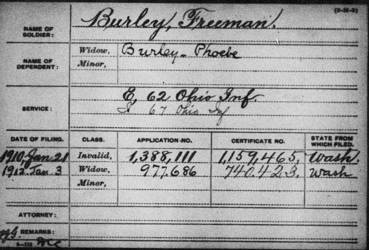 (3-20-3)
NAME OF SOLDIER: Burley, Freeman.
NAME OF DEPENDENT: Widow, Burley - Phoebe
Minor,
SERVICE: E, 62 Ohio Inf.
67 Ohio Inf
DATE OF FILING. CLASS. APPLICATION NO. CERTIFICATE NO. STATE FROM WHICH FILED.
1910, Jan. 21 Invalid, 1,388,111 1,159,465, Wash.
1912. Jan. 3 Widow, 977,686 740.423, Wash
Minor,
ATTORNEY:
REMARKS: